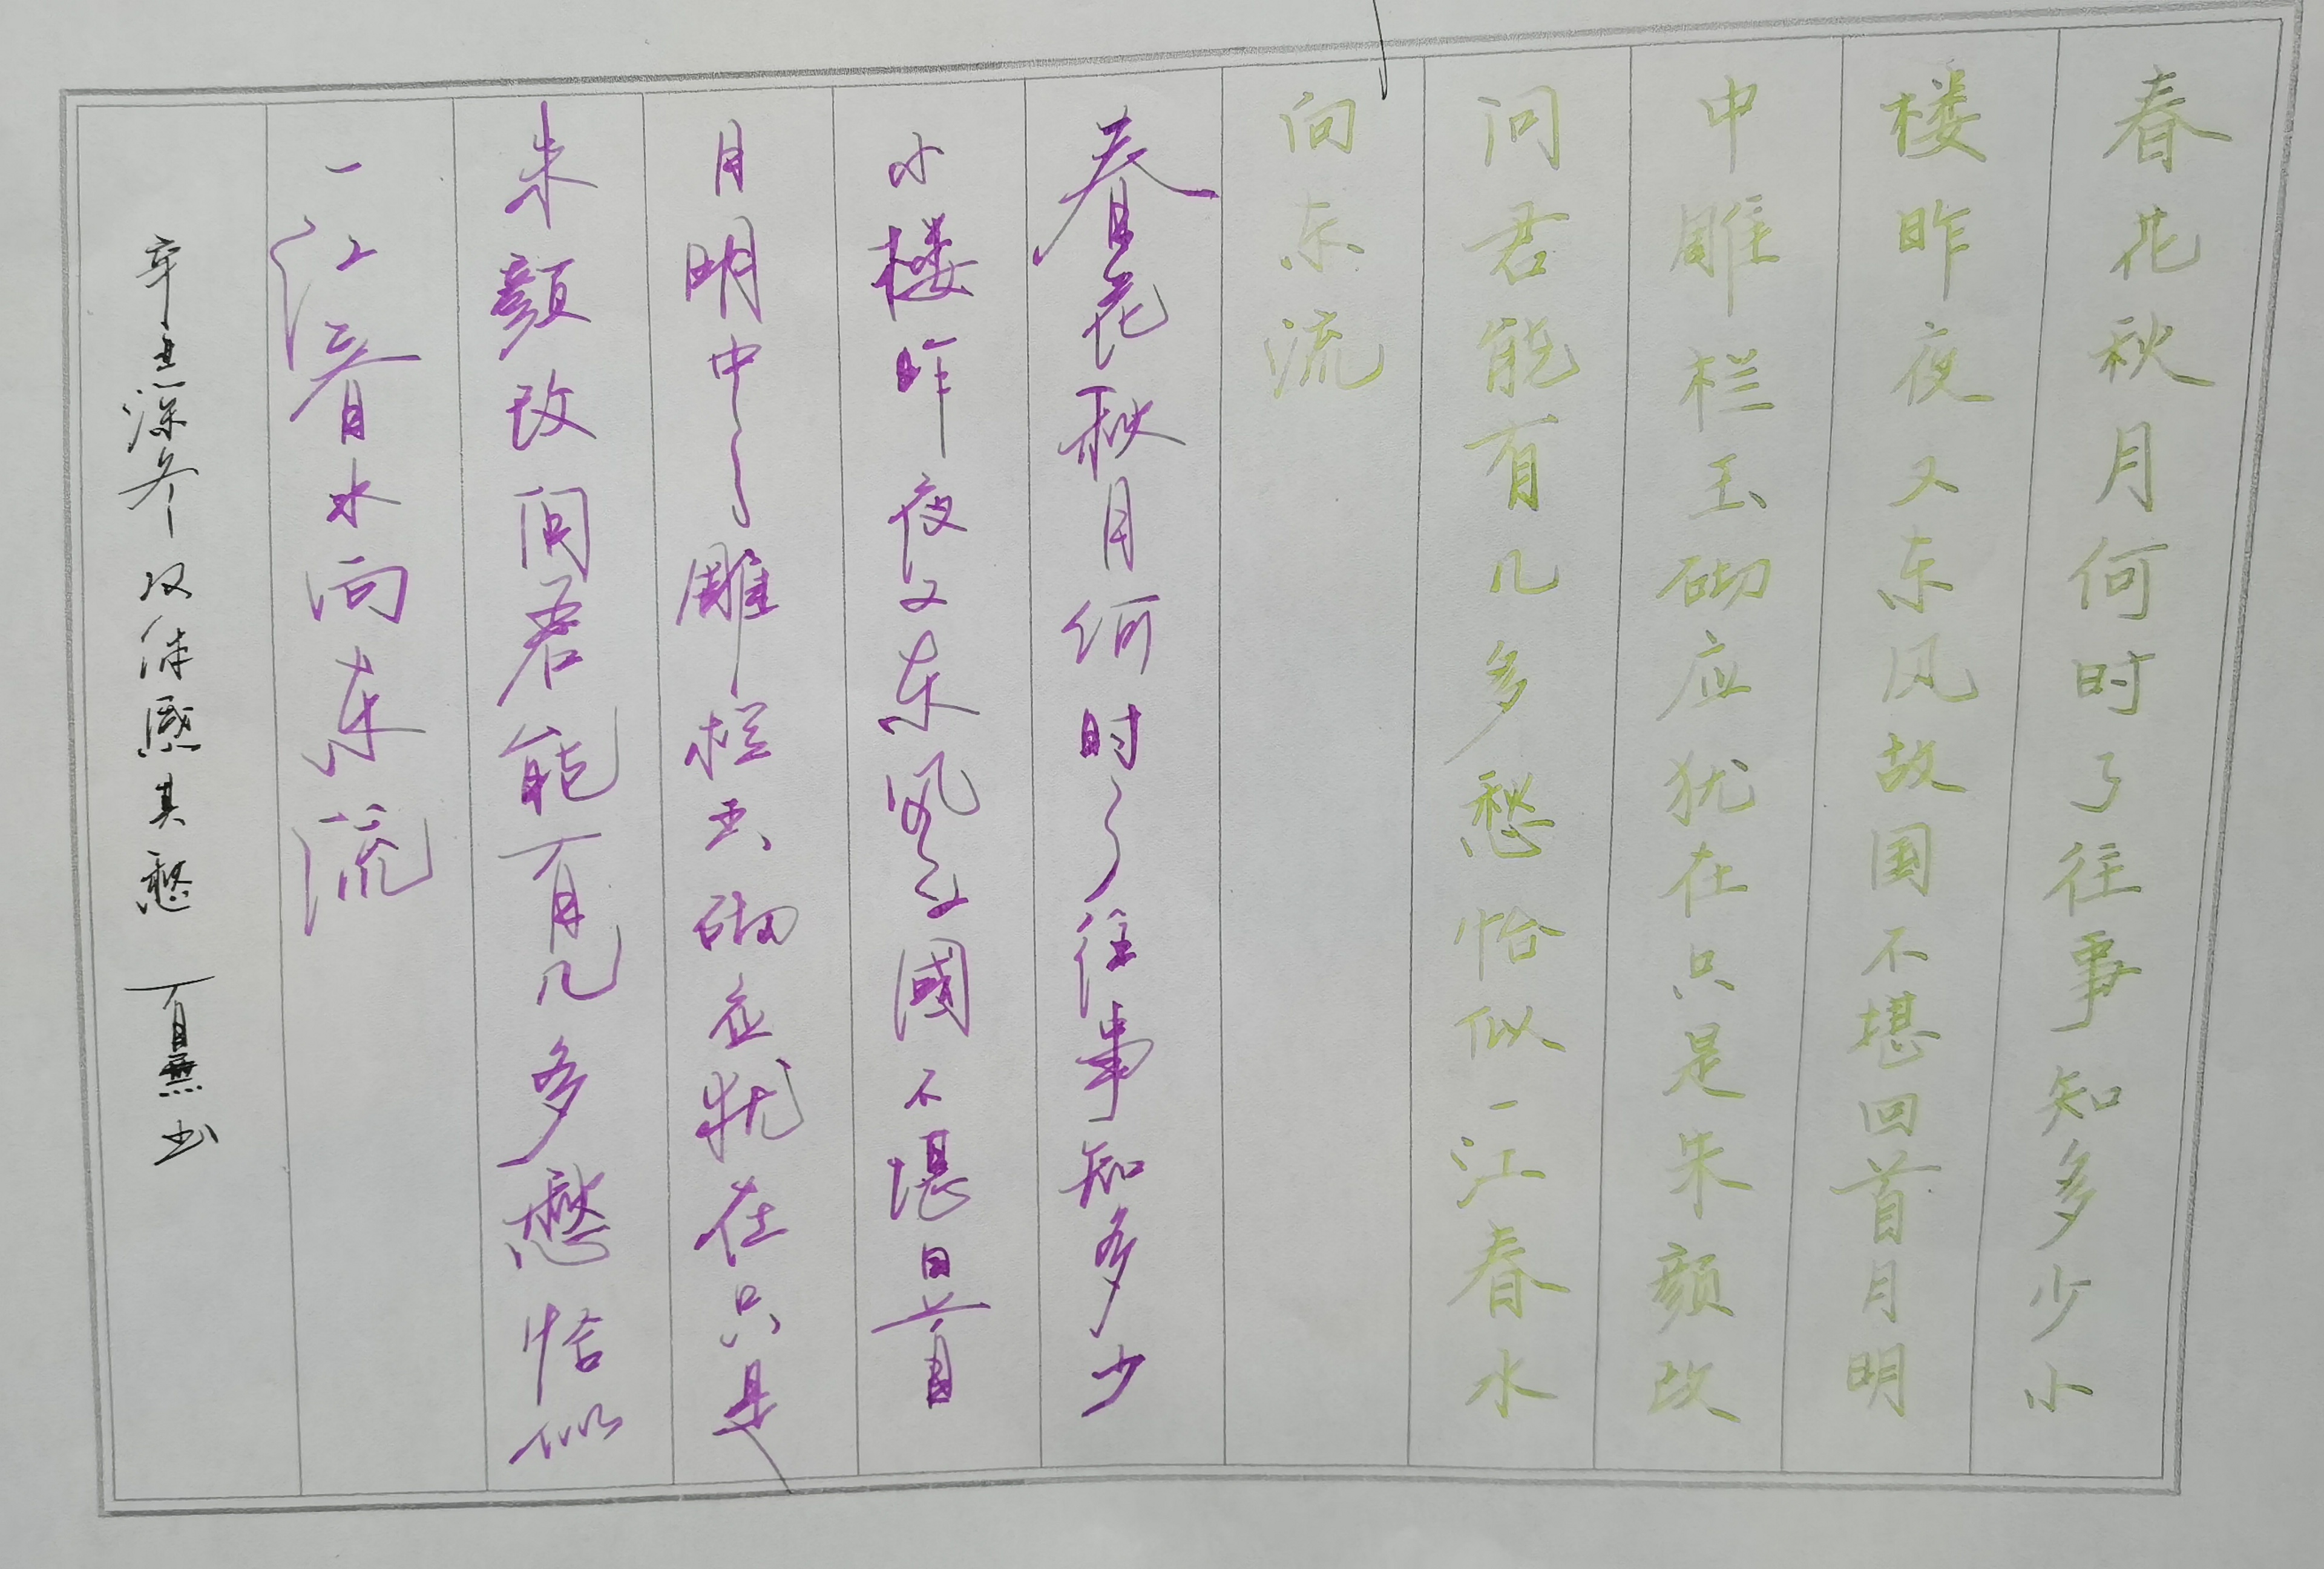 春花秋月何时了往事知多少小
楼昨夜又东风故国不堪回首月明
中雕栏玉砌应犹在只是朱颜改
问君能有几多愁恰似一江春水
向东流
春花秋月何时了往事知多少
小楼昨夜又东风故國不堪回首
月明中雕栏玉砌应犹在只是
朱颜改问君能有几多愁恰似
一江春水向东流
辛丑深冬体感其愁